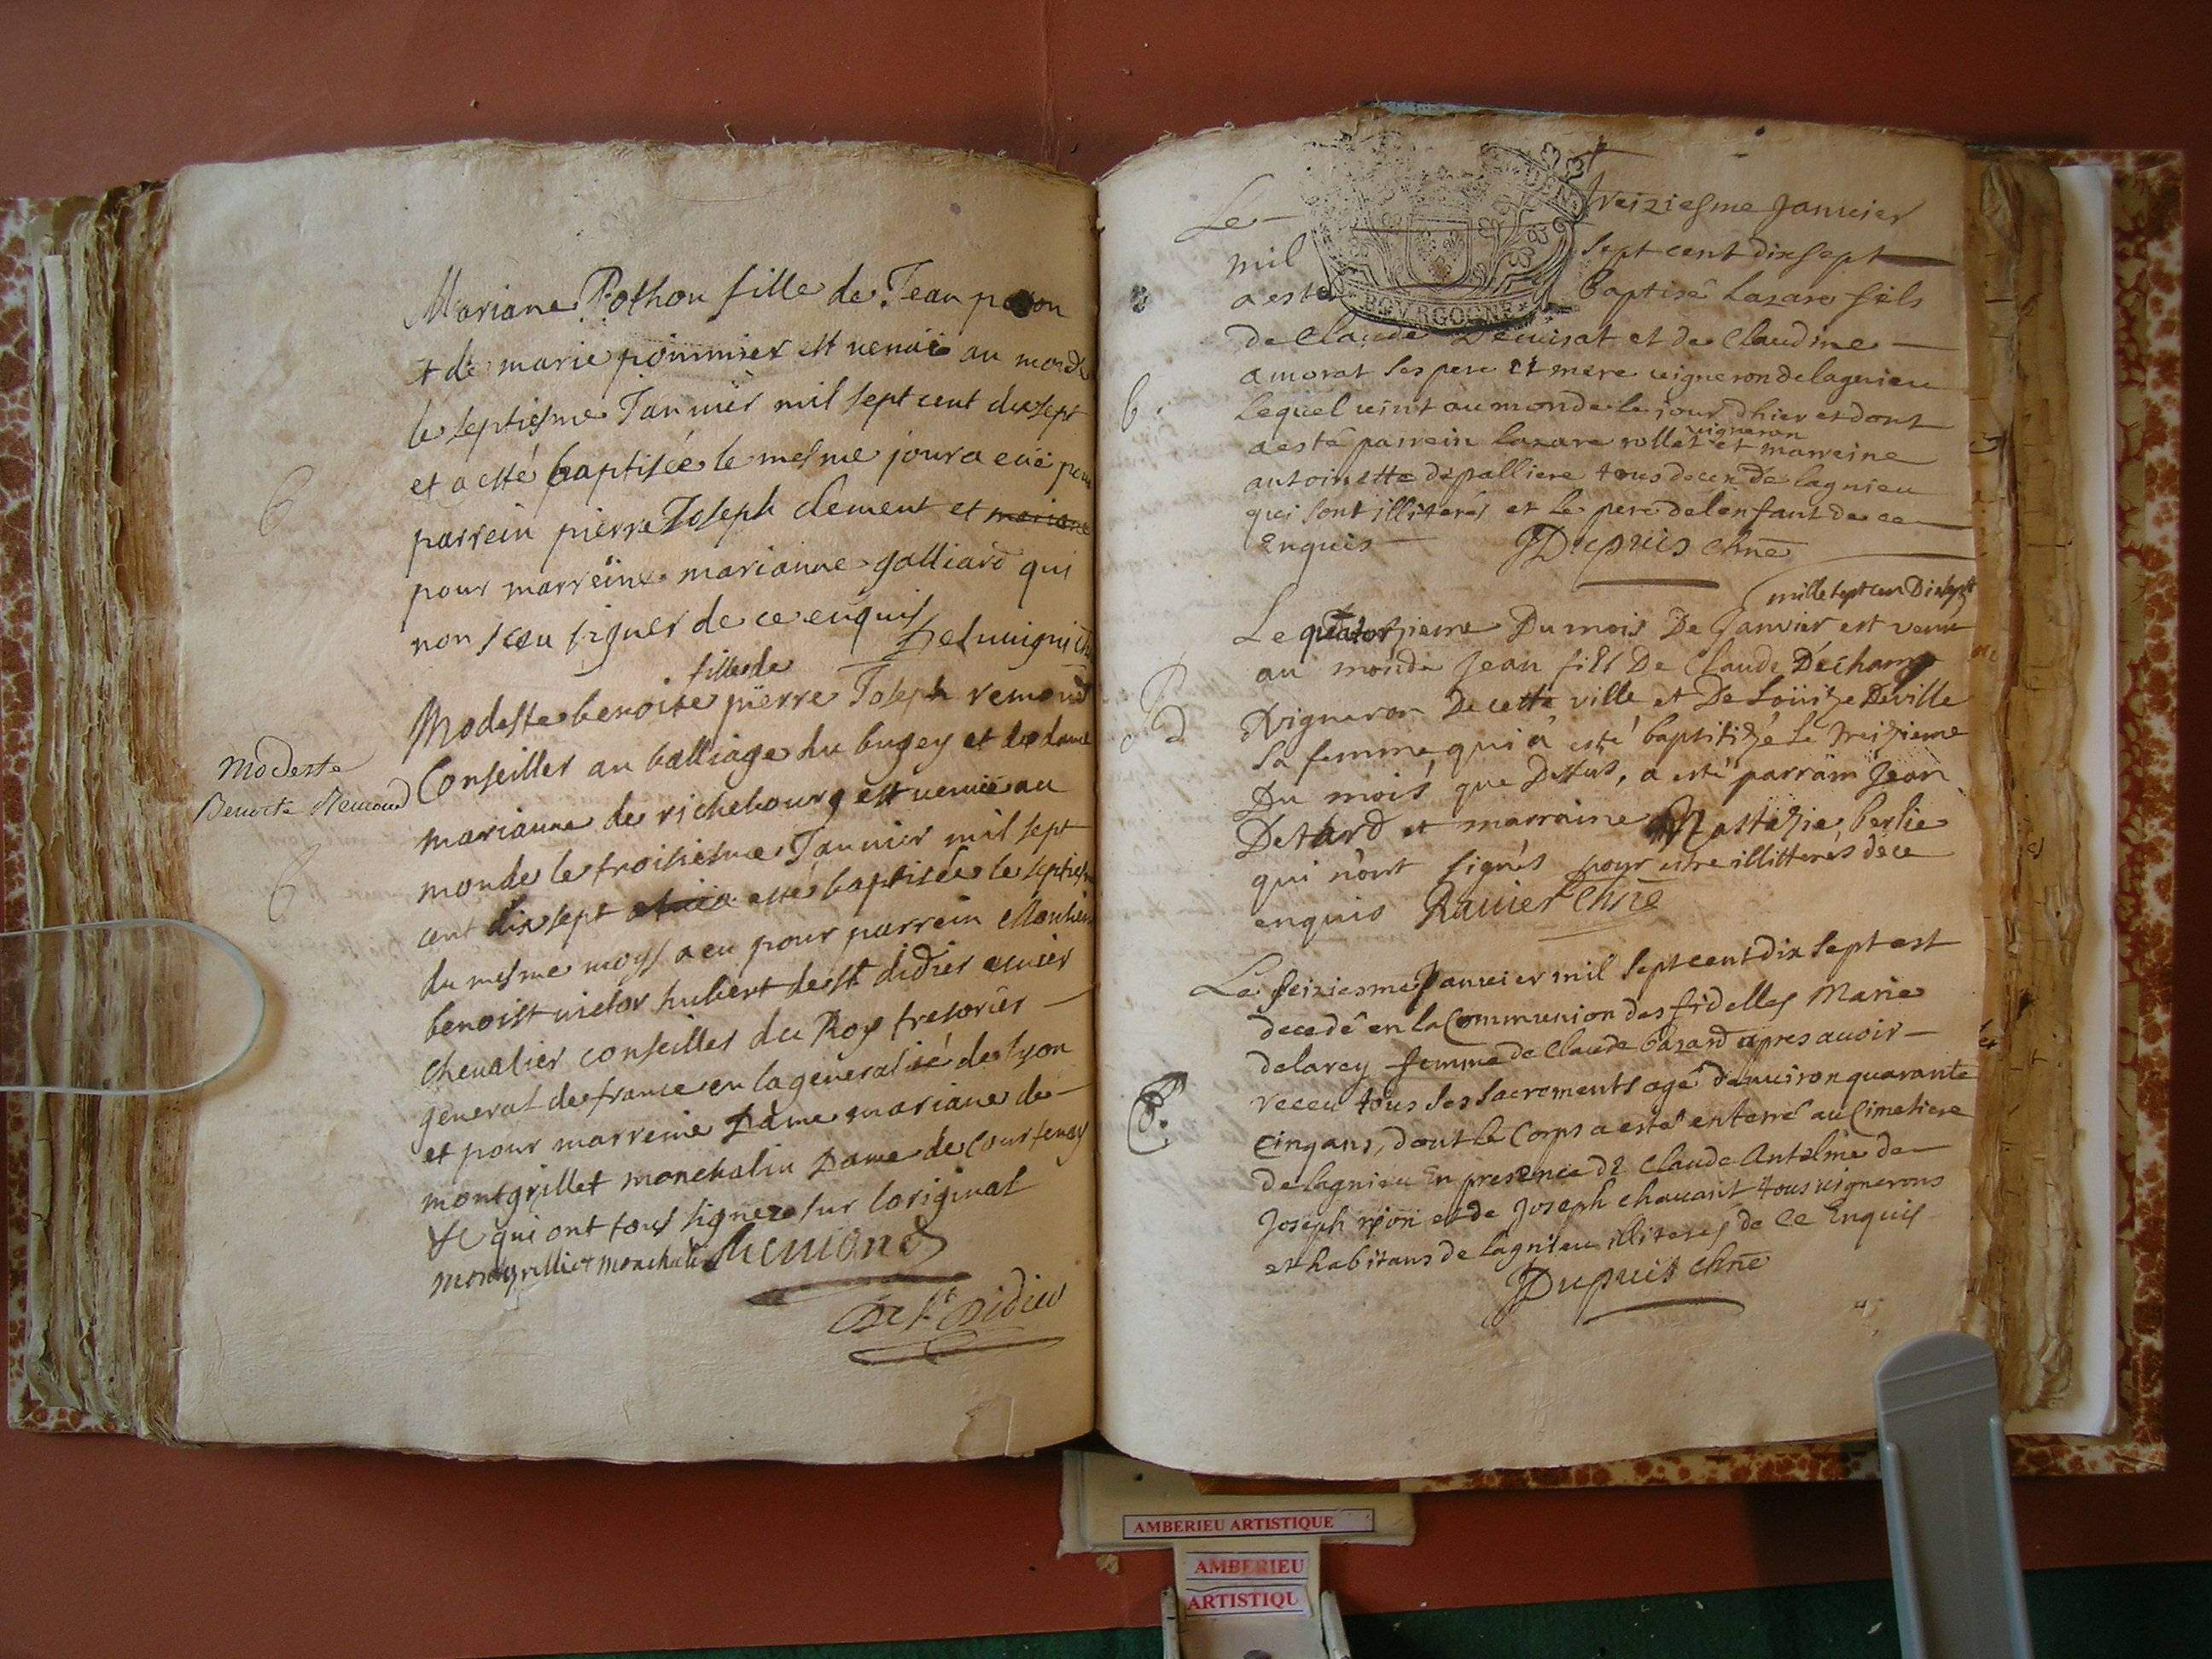 Mariane Pothon fille de Jean poton
et de marie pommier est venüe au monde
le septiesme Januier mil sept cent dixsept
et a esté baptisée le mesme jour a eüe pour
parrein pierre Joseph clement et mariane
pour marreine marianne galliard qui
non sceu signer de ce enquis
fille de
Modeste benoite pierre Joseph remond
Conseiller au balliage du bugey et de dame
Modeste
Benoite Remond
marianne de richebourg est venüe au
monde le troisiesme Januier mil sept
cent dix sept esté baptisée le septiesme
du mesme moys a eu pour parrein Monsieur
benoist uictor hubert de st didier
cheualier conseiller du Roy tresorier
general de france en la generalité de lyon
et pour marreine Dame mariane de
montgrillet monchalin Dame de Courtenay
&c qui ont tous signez sur loriginal
montgrillet monchalin Remond
De st Didier
Le treiziesme Januier
mil sept cent dix sept
a esté baptisé Lazare fils
BOVRGOGNE
de Claude Deuisat et de Claudine
amorat ses pere et mere uigneron de lagnieu
b. lequel uint au monde le jour dhier et dont
uigneron
a esté parrein lazare rollet et marreine
antoinette depalliere tous deux de lagnieu
qui sont illiterés et le pere de lenfant de ce
Enquis JDupuis chne
mille sept cen Dix sept
Le quatorzieme Du mois De Janvier est venu
au monde Jean fils De Claude Dechamp
Vigneron De cette ville et De Loüize Deville
sa femme, qui a esté baptitizé le treizieme
Du mois que Dessus, a esté parrain Jean
Detard et marraine Nastazie berlie
qui n'ont signés pour estre illitteres de ce
enquis Rauier Chne
Le seiziesme Januier mil sept cent dix sept est
decedé en la Communion des fidelles Marie
delarey femme de Claude bazard apres auoir
receu tous ses sacrements agé denuiron quarante
cinq ans, dont le Corps a esté enterré au Cimetiere
de lagnieu En presence de Claude Antelme de
Joseph rion et de Joseph chauant tous uignerons
et habitans de lagnieu illiteres de ce Enquis
JDupuis chne
AMBERIEU ARTISTIQUE
AMBERIEU
ARTISTIQU